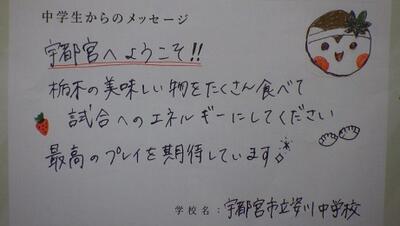 中学生からのメッセージ
宇都宮へようこそ!!
栃木の美味しい物をたくさん食べて
試合へのエネルギーにしてください
最高のプレイを期待しています。
学校名:宇都宮市立姿川中学校